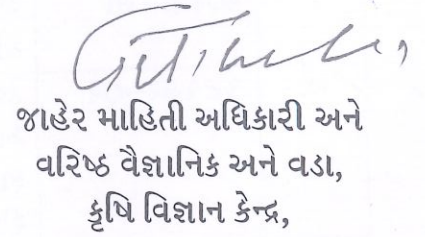 જાહેર માહિતી અધિકારી અને
વરિષ્ઠ વૈજ્ઞાનિક અને વડા,
કૃષિ વિજ્ઞાન કેન્દ્ર,